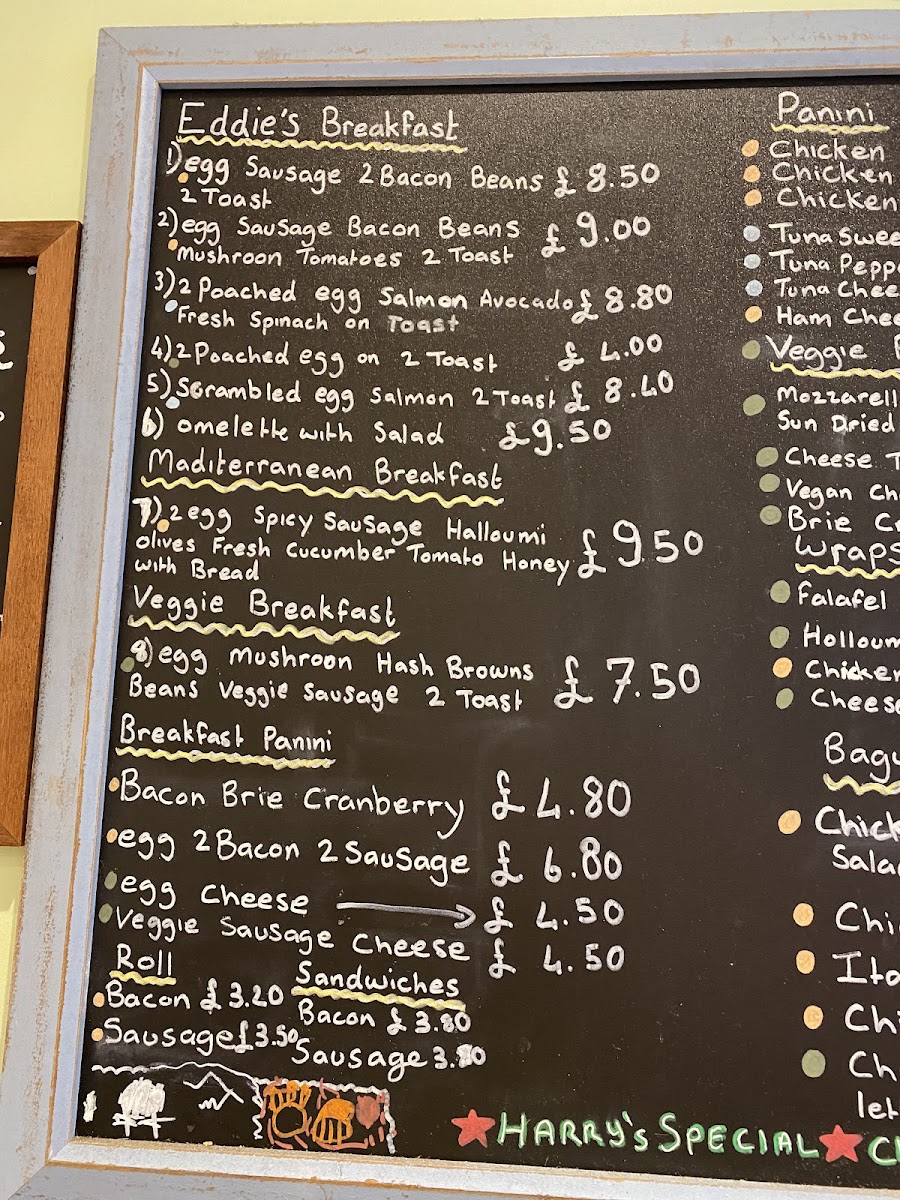 Eddie's Breakfast
1) egg Sausage 2 Bacon Beans £ 8.50
2 Toast
2) egg Sausage Bacon Beans £ 9.00
Mushroom Tomatoes 2 Toast
3) 2 Poached egg Salmon Avocado £ 8.80
Fresh Spinach on Toast
4) 2 Poached egg on 2 Toast £ 4.00
5) Scrambled egg Salmon 2 Toast £ 8.40
6) omelette with Salad £9.50
Maditerranean Breakfast
7) 2 egg Spicy Sausage Halloumi
olives Fresh Cucumber Tomato Honey £ 9.50
with Bread
Veggie Breakfast
8) egg mushroon Hash Browns
Beans Veggie Sausage 2 Toast £ 7.50
Breakfast Panini
Bacon Brie Cranberry £ 4.80
egg 2 Bacon 2 Sausage £ 6.80
egg Cheese £ 4.50
Veggie Sausage Cheese £ 4.50
Roll
Bacon £ 3.20
Sausage £3.50
Sandwiches
Bacon £ 3.80
Sausage
HARRY'S SPECIAL
Panini
Chicken
Chicken
Chicken
Tuna Swee
Tuna Pepp
Tuna Chee
Ham Chee
Veggie
Mozzarell
Sun Dried
Cheese T
Vegan Ch
Brie Cr
Wraps
Falafel
Holloum
Chicken
Cheese
Bagu
Chick
Sala
Chi
Ita
Ch
Ch
let